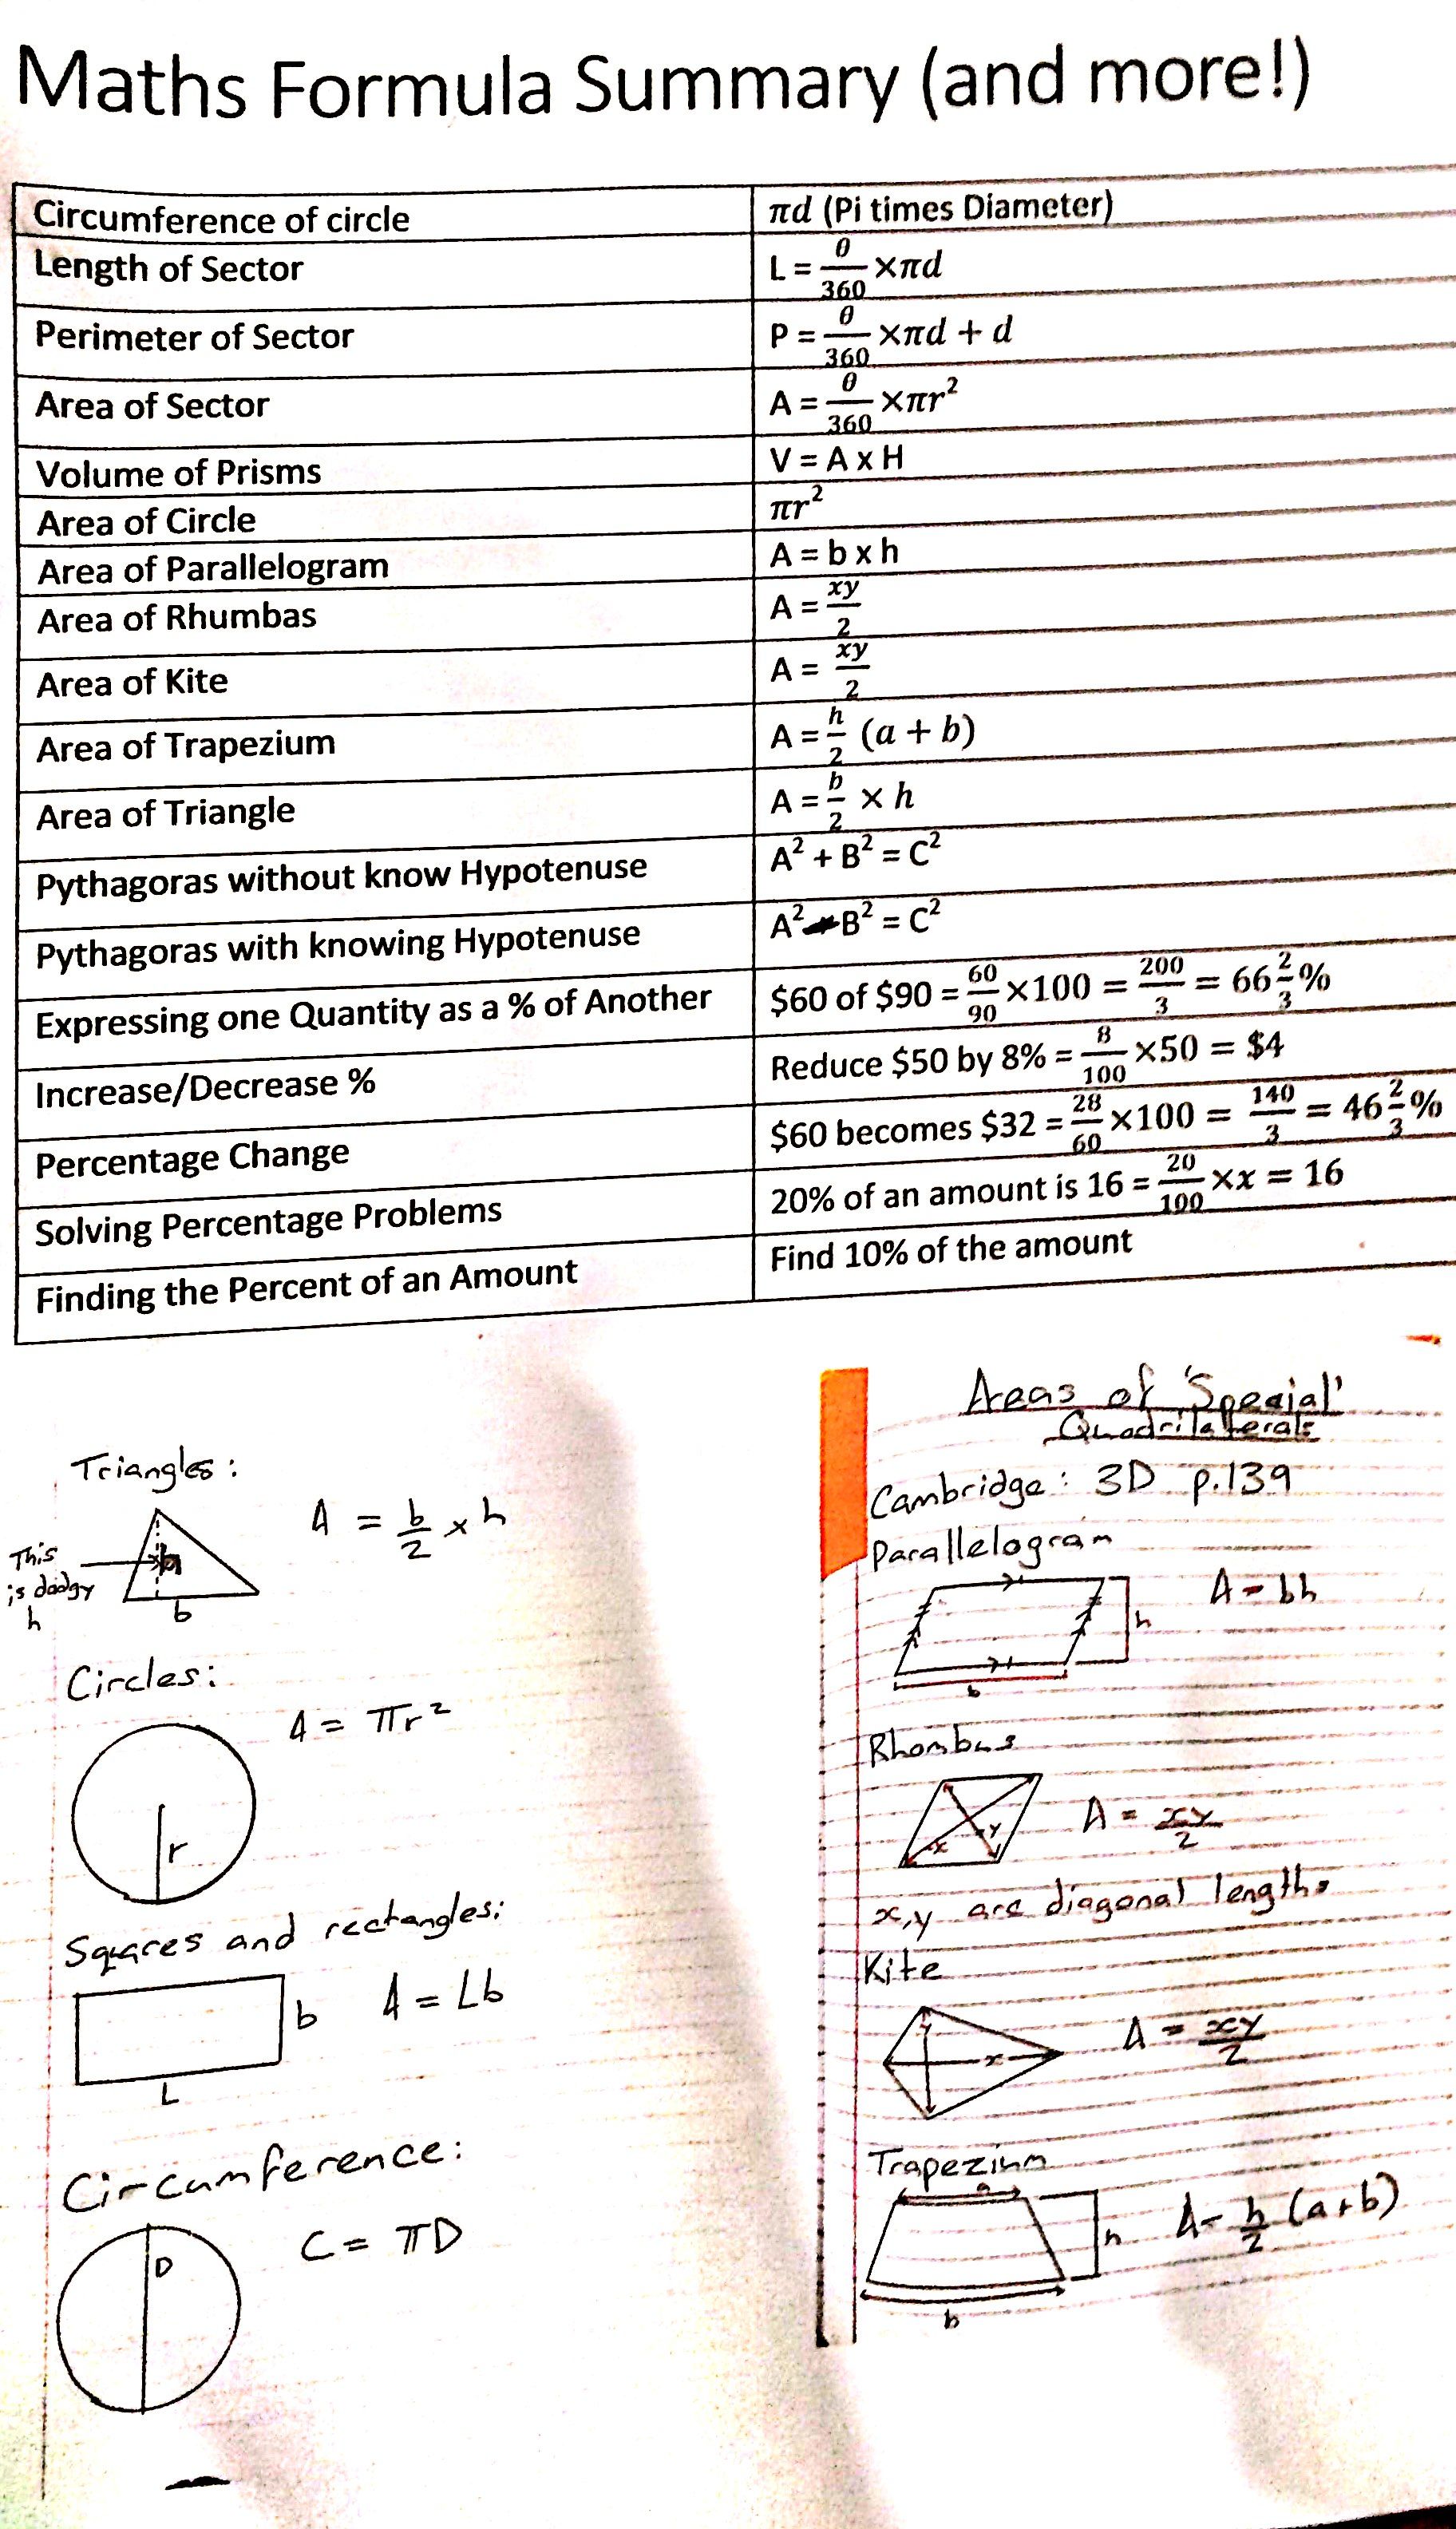 Maths Formula Summary (and more!)
Circumference of circle πd (Pi times Diameter)
Length of Sector L = θ/360 ×πd
Perimeter of Sector P = θ/360 ×πd + d
Area of Sector A = θ/360 ×πr²
Volume of Prisms V = A x H
Area of Circle πr²
Area of Parallelogram A = b x h
Area of Rhumbas A = xy/2
Area of Kite A = xy/2
Area of Trapezium A = h/2 (a + b)
Area of Triangle A = b/2 × h
Pythagoras without know Hypotenuse A² + B² = C²
Pythagoras with knowing Hypotenuse A² - B² = C²
Expressing one Quantity as a % of Another $60 of $90 = 60/90 ×100 = 200/3 = 66 2/3 %
Increase/Decrease % Reduce $50 by 8% = 8/100 ×50 = $4
Percentage Change $60 becomes $32 = 28/60 ×100 = 140/3 = 46 2/3 %
Solving Percentage Problems 20% of an amount is 16 = 20/100 ×x = 16
Finding the Percent of an Amount Find 10% of the amount
Triangles:
A = b/2 × h
This
is dodgy
h
b
Circles:
A = πr²
r
Squares and rectangles:
b
A = Lb
L
Circumference:
C = πD
D
Areas of 'Special'
Quadrilaterals
Cambridge: 3D p.139
Parallelogram
A = bh
h
b
Rhombus
x y
A = xy/2
x,y are diagonal lengths
Kite
y
x
A = xy/2
Trapezium
a
h
A = h/2 (a+b)
b